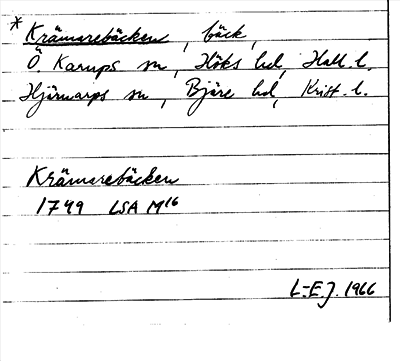 * Krämarebäcken, bäck,
Ö. Karups sn, Höks hd, Hall. l.
Hjärnarps sn, Bjäre hd, Krist. l.
Krämarebäcken
1749 LSA M16
L-E.J. 1966